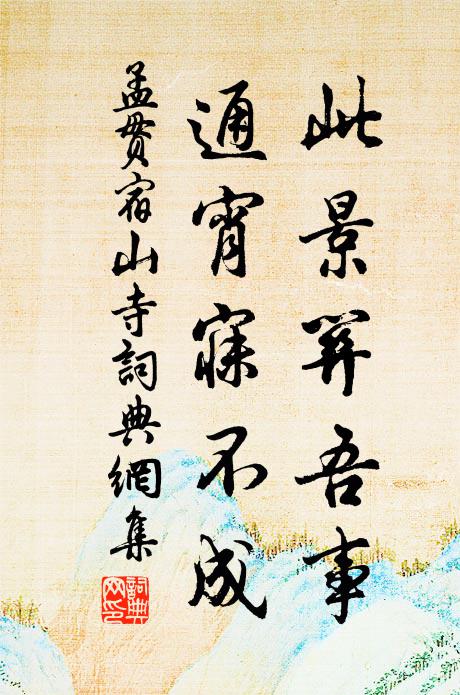 此景關吾事
通宵寐不成
孟貫宿山寺詞典網集
詞典网印